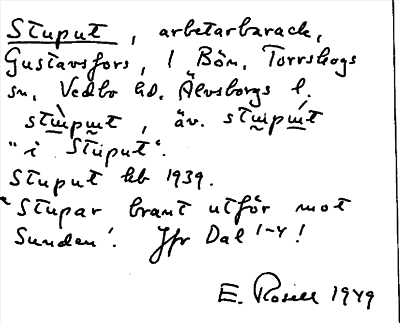 Stuput, arbetarbarack,
Gustavsfors, 1 Bön, Torrskogs
sn, Vedbo hd, Älvsborgs l.
stùput, äv. stupút
"i Stuput".
Stuput kb 1939.
"Stupar brant utför mot
Sunden". Jfr Dal 1-4!
E. Rosell 1949